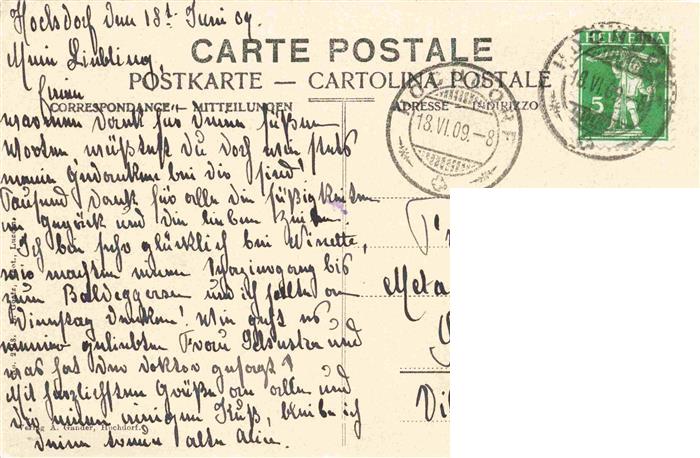 Hochdorf den 18t Juni 09.
Mein Liebling,
CARTE POSTALE
POSTKARTE — CARTOLINA POSTALE
CORRESPONDANCE — MITTEILUNGEN
ADRESSE — INDIRIZZO
HELVETIA
5
HOCHDORF
18.VI.09.-8
HOCHDORF
18.VI.09.
warmen Dank für deinen süßen
Worten wüßtest du doch wie stets
meine Gedanken bei dir sind!
Tausend Dank für alle die Süßigkeiten
im und die lieben
Ich bin sehr glücklich bei
wir machten einen Spaziergang bis
zum Baldeggersee und ich sollte an
Dienstag denken! Wie geht es
meiner geliebten Frau Silvestra und
was hat der Doktor gesagt?
Mit herzlichsten Grüßen an alle und
dir einen innigen Kuß, bleibe ich
deine alte Alice.
Meta
Verlag A. Gander, Hochdorf.